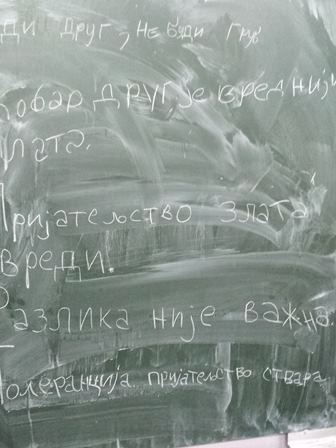 ди Друг, Не Буди Груб
обар друг је вреднији
лата.
Пријатељство Злата
вреди.
Разлика није важна.
Толеранција пријатељство ствара